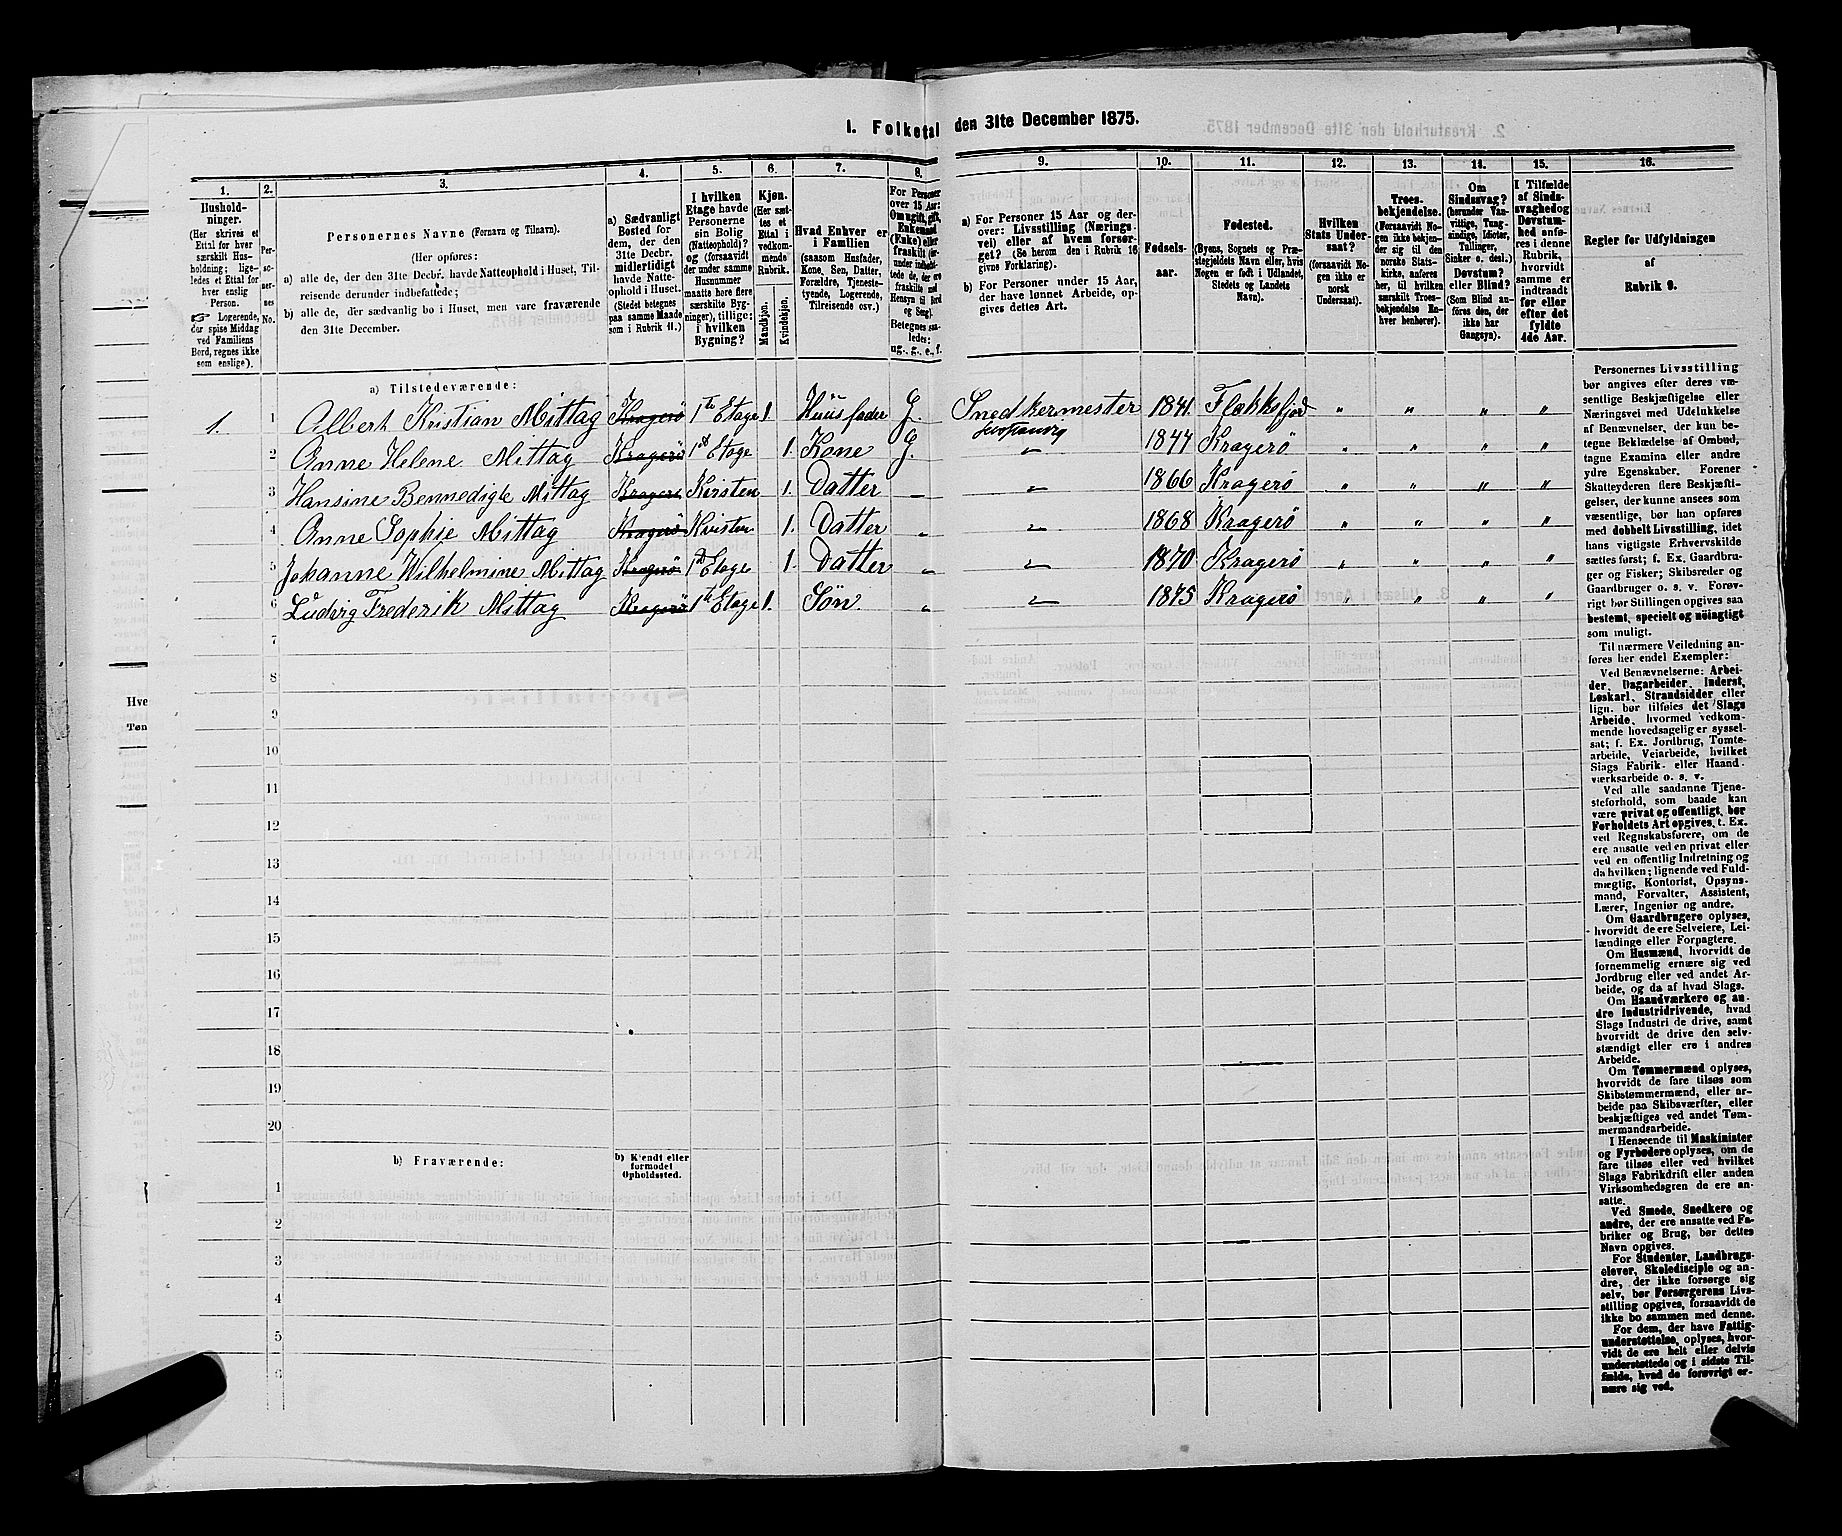 1. Folketal den 31te December 1875.
1. 2. 3. 4. 5. 6. 7. 8. 9. 10. 11. 12. 13. 14. 15. 16.
Husholdninger.
(Her skrives et
Ettal for hver
særskilt Husholdning;
ligeledes et Ettal for
hver enslig
Person.
Logerende,
der spise Middag
ved Familiens
Bord, regnes ikke
som enslige).
Personernes No.
Personernes Navne (Fornavn og Tilnavn).
(Her opføres:
a) alle de, der den 31te Decbr. havde Natteophold i Huset, Tilreisende derunder indbefattede;
b) alle de, der sædvanlig bo i Huset, men vare fraværende
den 31te December.
a) Sædvanligt
Bosted for
dem, der den
31te Decbr.
midlertidigt
havde Natteophold i Huset.
(Stedet betegnes
paa samme Maade
som i Rubrik 11.)
I hvilken
Etage havde
Personerne
sin Bolig
(Natteophold)?
og (forsaavidt
der under samme
Husnummer
maatte høre flere
særskilte Bygninger), tillige:
i hvilken
Bygning?
Kjøn.
(Her sættes et
Ettal i
vedkommende
Rubrik.
Mandkjøn.
Kvindekjøn.
Hvad Enhver er
i Familien
(saasom Husfader,
Kone, Søn, Datter,
Forældre, Tjenestetyende, Logerende,
Tilreisende osv.)
For Personer
over 15 Aar:
Om ugift, gift,
Enkemand
(Enke) eller
fraskilt
Betegnes saaledes:
ug., g., e., f.
a) For Personer 15 Aar og derover: Livsstilling (Næringsvei) eller af hvem forsørget? (Se herom den i Rubrik 16
givne Forklaring).
b) For Personer under 15 Aar,
der have lønnet Arbeide, opgives dettes Art.
Fødselsaar.
Fødested.
(Byens, Sognets og Præstegjeldets Navn eller, hvis
Nogen er født i Udlandet,
Stedets og Landets
Navn).
Hvilken
Stats Undersaat?
(forsaavidt Nogen ikke er
norsk
Undersaat).
Troesbekjendelse.
(Forsaavidt Nogen ikke bekjender sig til den
norske Statskirke, anføres
her, til hvilken
særskilt Troesbekjendelse Enhver henhører).
Om
Sindssvag?
(herunder Vanvittige, Tungsindige, Idioter,
Tullinger,
Sinker o. desl.)
Døvstum?
eller Blind?
(Som Blind anføres den, der
ikke har
Gangsyn).
I Tilfælde
af Sindssvaghed og
Døvstumhed anføres i denne
Rubrik,
hvorvidt
samme er
indtraadt
før eller
efter det
fyldte
4de Aar.
Regler for Udfyldningen
af
Rubrik 9.
a) Tilstedeværende:
1. 1 Albert Kristian Mittag Kragerö 1te Etage 1. Huusfader G. Snedkermester 1841 Flekkefjord " " " "
2 Anne Helene Mittag Kragerö 1st Etage 1. Kone G. " 1844 Kragerö " " " "
3 Hansine Bennedigte Mittag Kragerö Kvisten 1. Datter " " 1866 Kragerö " " " "
4 Anne Sophie Mittag Kragerö Kvisten 1. Datter " " 1868 Kragerö " " " "
5 Johanne Wilhelmine Mittag Kragerö 1st Etage 1. Datter " " 1870 Kragerö " " " "
6 Ludvig Frederik Mittag Kragerö 1te Etage 1. Sön. " " 1875 Kragerö " " " "
7
8
9
10
11
12
13
14
15
16
17
18
19
20
b) Fraværende:
b) Kjendt eller
formodet
Opholdssted.
1
2
3
4
5
6
Personernes Livsstilling
bør angives efter deres væsentlige Beskjæftigelse eller
Næringsvei med Udelukkelse
af Benævnelser, der kun betegne Beklædelse af Ombud,
tagne Examina eller andre
ydre Egenskaber. Forener
Skatteyderen flere Beskjæftigelser, der kunne ansees som
væsentlige, bør han opføres
med dobbelt Livsstilling, idet
hans vigtigste Erhvervskilde
sættes først; f. Ex. Gaardbruger og Fisker; Skibsreder og
Gaardbruger o. s. v. Forøvrigt bør Stillingen opgives saa
bestemt, specielt og nöiagtigt
som muligt.
Til nærmere Veiledning anføres her endel Exempler:
Ved Benævnelserne: Arbeider, Dagarbeider, Inderst,
Løskarl, Strandsidder eller
lign. bør tilføies det Slags
Arbeide, hvormed vedkommende hovedsagelig er sysselsat; f. Ex. Jordbrug, Tomtearbeide, Veiarbeide, hvilket
Slags Fabrik- eller Haandværksarbeide o. s. v.
Ved alle saadanne Tjenesteforhold, som baade kan
være privat og offentligt, bør
Forholdets Art opgives, t. Ex.
ved Regnskabsførere, om de
ere ansatte ved en privat eller
ved en offentlig Indretning og
da hvilken; lignende ved Fuldmægtig, Kontorist, Opsynsmand, Forvalter, Assistent,
Lærer, Ingeniør og andre.
Om Gaardbrugere oplyses,
hvorvidt de ere Selveiere, Leilændinge eller Forpagtere.
Om Husmænd, hvorvidt de
fornemmelig ernære sig ved
Jordbrug eller ved andet Arbeide, og da af hvad Slags.
Om Haandværkere og andre Industridrivende, hvad
Slags Industri de drive, samt
hvorvidt de drive den selvstændigt eller ere i andres
Arbeide.
Om Tømmermænd oplyses,
hvorvidt de fare tilsøs som
Skibstømmermænd, eller arbeide paa Skibsværfter, eller
beskjæftiges ved andet Tømmermandsarbeide.
I Henseende til Maskinister
og Fyrbødere oplyses, om de
fare tilsøs eller ved hvilket
Slags Fabrikdrift eller anden
Virksomhedsgren de ere ansatte.
Ved Smede, Snedkere og
andre, der ere ansatte ved Fabriker og Brug, bør dettes
Navn opgives.
For Studenter, Landbrugselever, Skoledisciple og andre, der ikke forsørge sig
selv, bør Forsørgerens Livsstilling opgives, forsaavidt de
ikke bo sammen med denne.
For dem, der have Fattigunderstøttelse, oplyses, hvorvidt de ere helt eller delvis
understøttede og i sidste Tilfælde, hvad de forøvrigt ernære sig ved.
Hve
Tøn